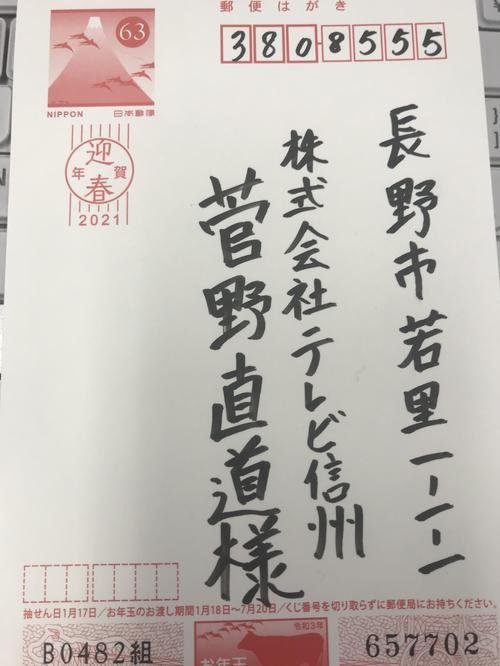 郵便はがき
63
NIPPON 日本郵便
3808555
迎春
年賀
2021
長野市若里一-一-一
株式会社テレビ信州
菅野直道様
抽せん日1月17日／お年玉のお渡し期間1月18日～7月20日／くじ番号を切り取らずに郵便局にお持ちください。
B0482組
令和3年
お年玉
657702